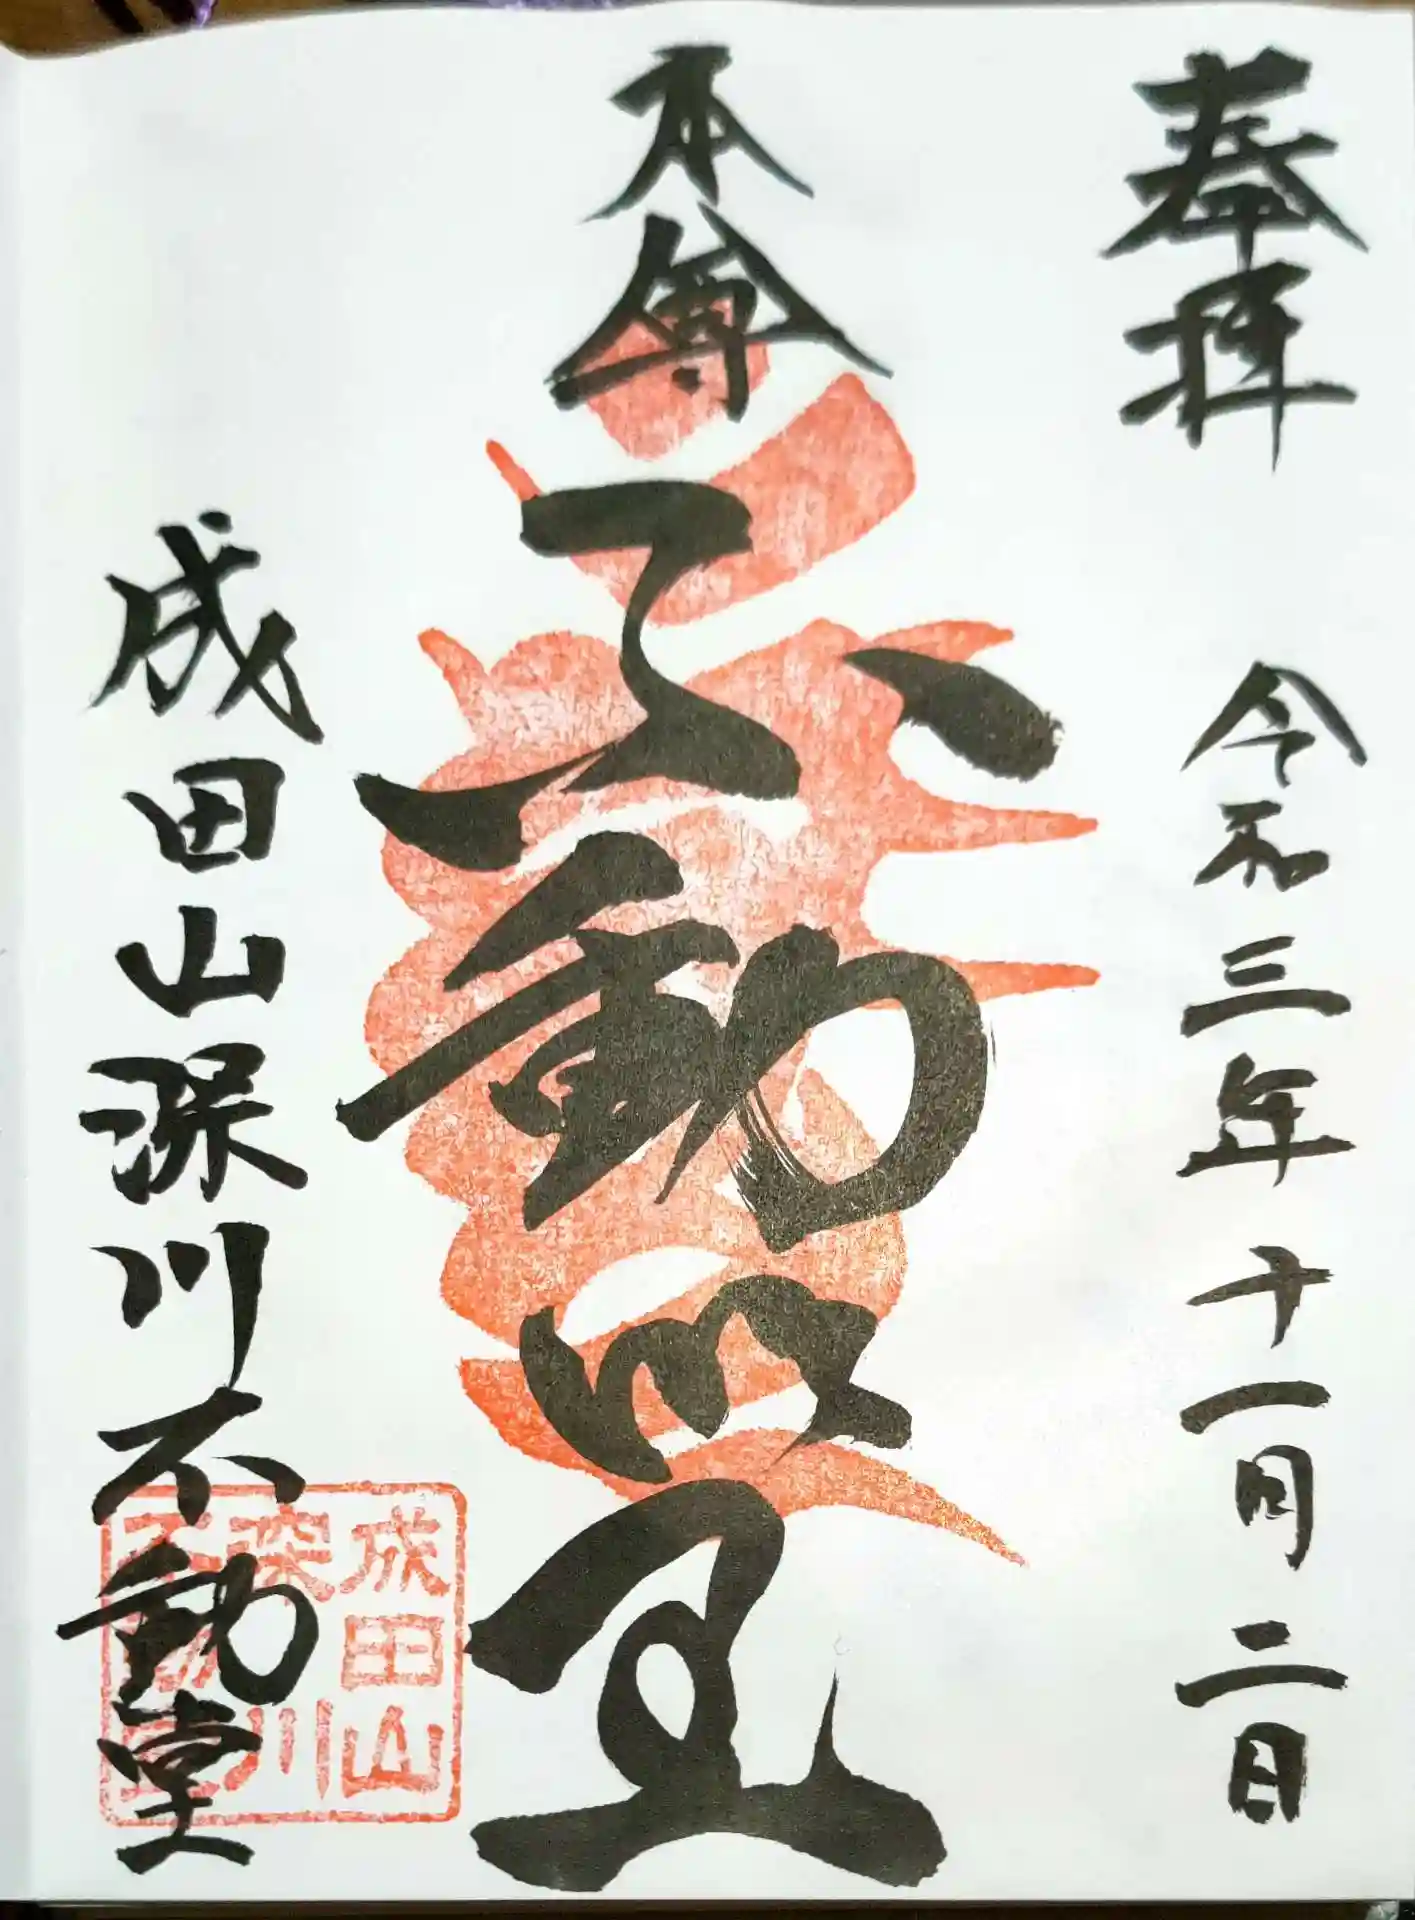 奉拝
令和三年十一月二日
本尊
不動明王
成田山深川不動堂
成田山
深川
不動堂